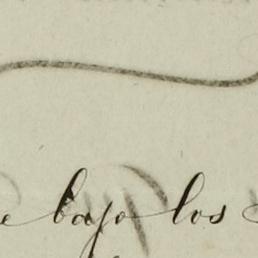 bajo los